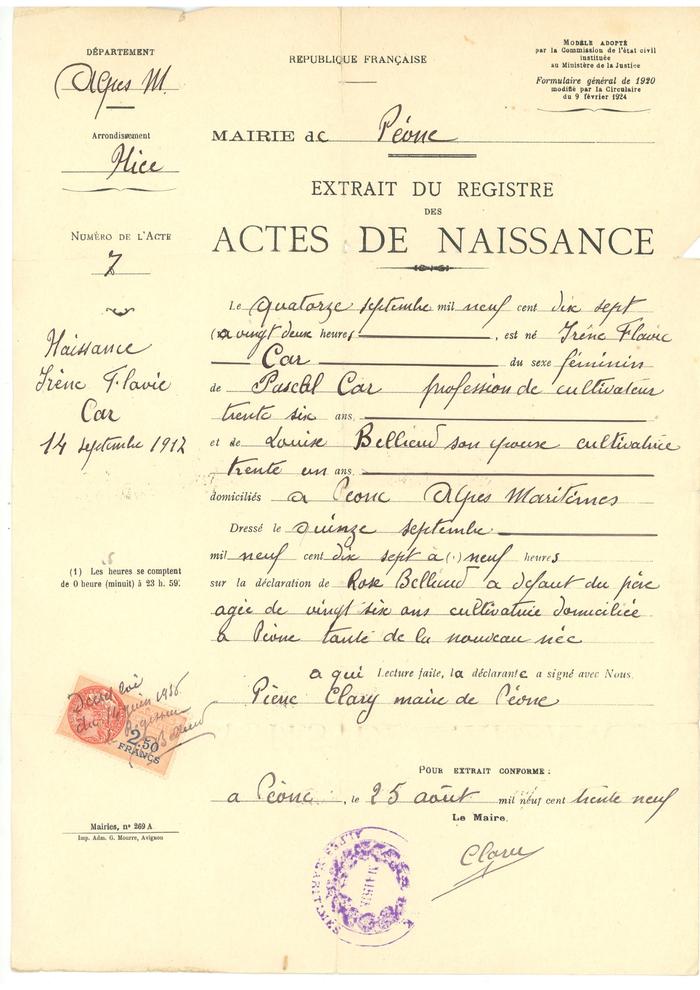 DÉPARTEMENT
Alpes M.
REPUBLIQUE FRANÇAISE
MODÈLE ADOPTÉ
par la Commission de l'état civil
instituée
au Ministère de la Justice
Formulaire général de 1920
modifié par la Circulaire
du 9 février 1924
Arrondissement
Nice
MAIRIE de Péone
EXTRAIT DU REGISTRE
DES
ACTES DE NAISSANCE
NUMÉRO DE L'ACTE
7
Naissance
Irène Flavie
Car
14 septembre 1917
Le quatorze septembre mil neuf cent dix sept
(à vingt deux heures, est né Irène Flavie
Car du sexe féminin
de Pascal Car profession de cultivateur
trente six ans.
et de Louise Bellieud son épouse cultivatrice
trente un ans.
domiciliés à Péone Alpes Maritimes
Dressé le quinze septembre
mil neuf cent dix sept à (1) neuf heures
sur la déclaration de Rose Belleud a défaut du père
agée de vingt six ans cultivatrice domiciliée
a Péone tante de la nouveau née
a qui Lecture faite, la déclarante a signé avec Nous.
Pierre Clary maire de Péone
(1) Les heures se comptent
de 0 heure (minuit) à 23 h. 59.
du 14 juin 1936
2.50
FRANCS
POUR EXTRAIT CONFORME :
a Péone, le 25 août mil neuf cent trente neuf
Le Maire,
Clary
Mairies, nº 269 A
Imp. Adm. G. Mourre, Avignon
MAIRIE
ALPES-MARITIMES